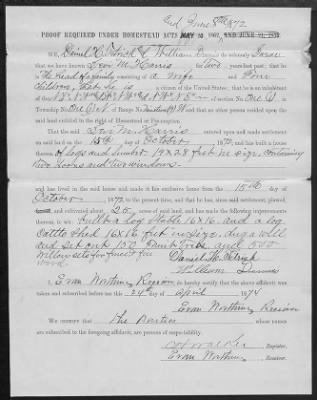 and June 8th 1872
PROOF REQUIRED UNDER HOMESTEAD ACTS MAY 20, 1862, AND JUNE 21, 1866
WE, Daniel and William do solemnly
that we have known Levi M. Harris for two years last past; that he is
the Head of a family consisting of a Wife and Four
Children, that he is a citizen of the United States; that he is an inhabitant
of the of section No. One (1) in
Township No. One (1) of Range No. and that no other person resided upon the
said land entitled to the right of Homestead or Pre-emption.
That the said Levi M. Harris entered upon and made settlement
on said land on the 15th day of October, 1872, and has built a house
thereon of Logs and lumber 19 x 28 feet in size, containing
two doors and two windows.
and has lived in the said house and made it his exclusive home from the 15th day of
October, 1872, to the present time, and that he has, since said settlement, plowed,
and cultivated about 25 acres of said land, and has made the following improvements
thereon, to wit: Built a log Stable 16 x 16. and a log
Cattle Shed 16 x 16 feet in size, dug a well
and set out 150 Fruit Trees and 500
Willow sets for fence for
Daniel
William
I, Evan Worthing Receiver, do hereby certify that the above affidavit was
taken and subscribed before me this 24th day of April, 1874
Evan Worthing Receiver
WE CERTIFY that The Parties whose names
are subscribed to the foregoing affidavit, are persons of respectability.
Register.
Evan Worthing Receiver.